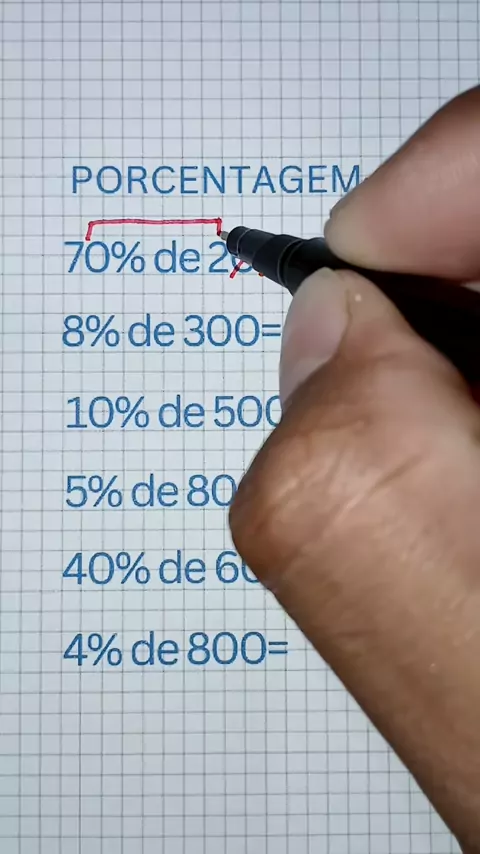 PORCENTAGEM
70% de 20
8% de 300=
10% de 500
5% de 80
40% de 60
4% de 800=